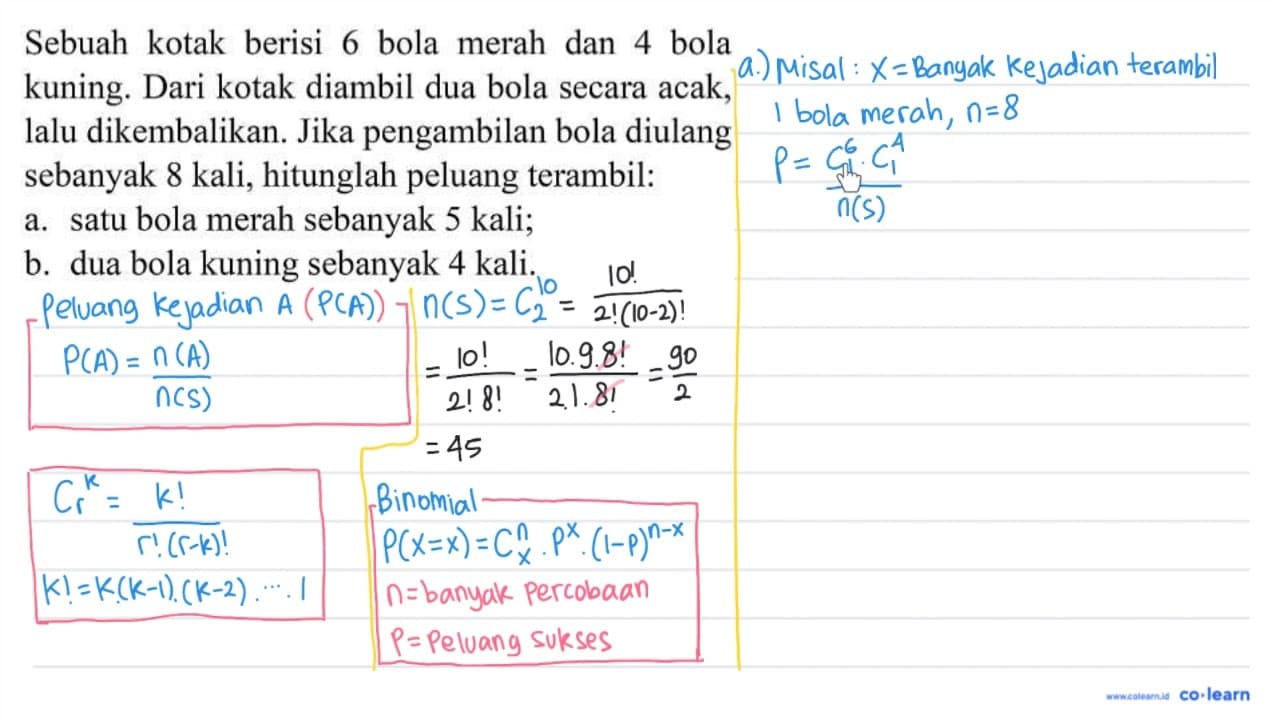 Sebuah kotak berisi 6 bola merah dan 4 bola
kuning. Dari kotak diambil dua bola secara acak,
lalu dikembalikan. Jika pengambilan bola diulang
sebanyak 8 kali, hitunglah peluang terambil:
a. satu bola merah sebanyak 5 kali;
b. dua bola kuning sebanyak 4 kali.
Peluang kejadian A (P(A))
P(A) = n(A)
n(S)
C_r^k = k!
r!.(r-k)!
k! = k.(k-1).(k-2). ... .1
n(S) = C_2^10 = 10! / 2!(10-2)!
= 10! / 2! 8! = 10.9.8! / 2.1.8! = 90 / 2
= 45
Binomial
P(X=x) = C_x^n . P^x . (1-P)^n-x
n = banyak percobaan
P = Peluang sukses
a.) Misal : X = Banyak kejadian terambil
1 bola merah, n=8
P = C_1^6 . C_1^4
n(S)
www.colearn.id co·learn